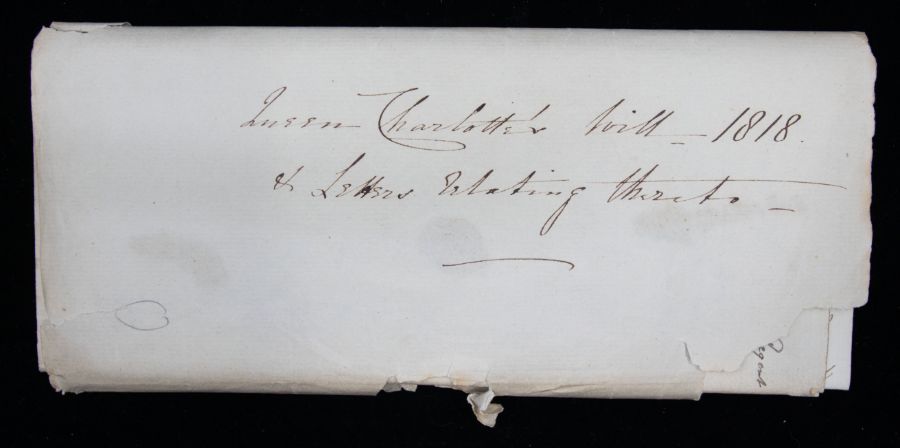 Queen Charlotte's Will - 1818.
& Letters relating thereto -
Regent